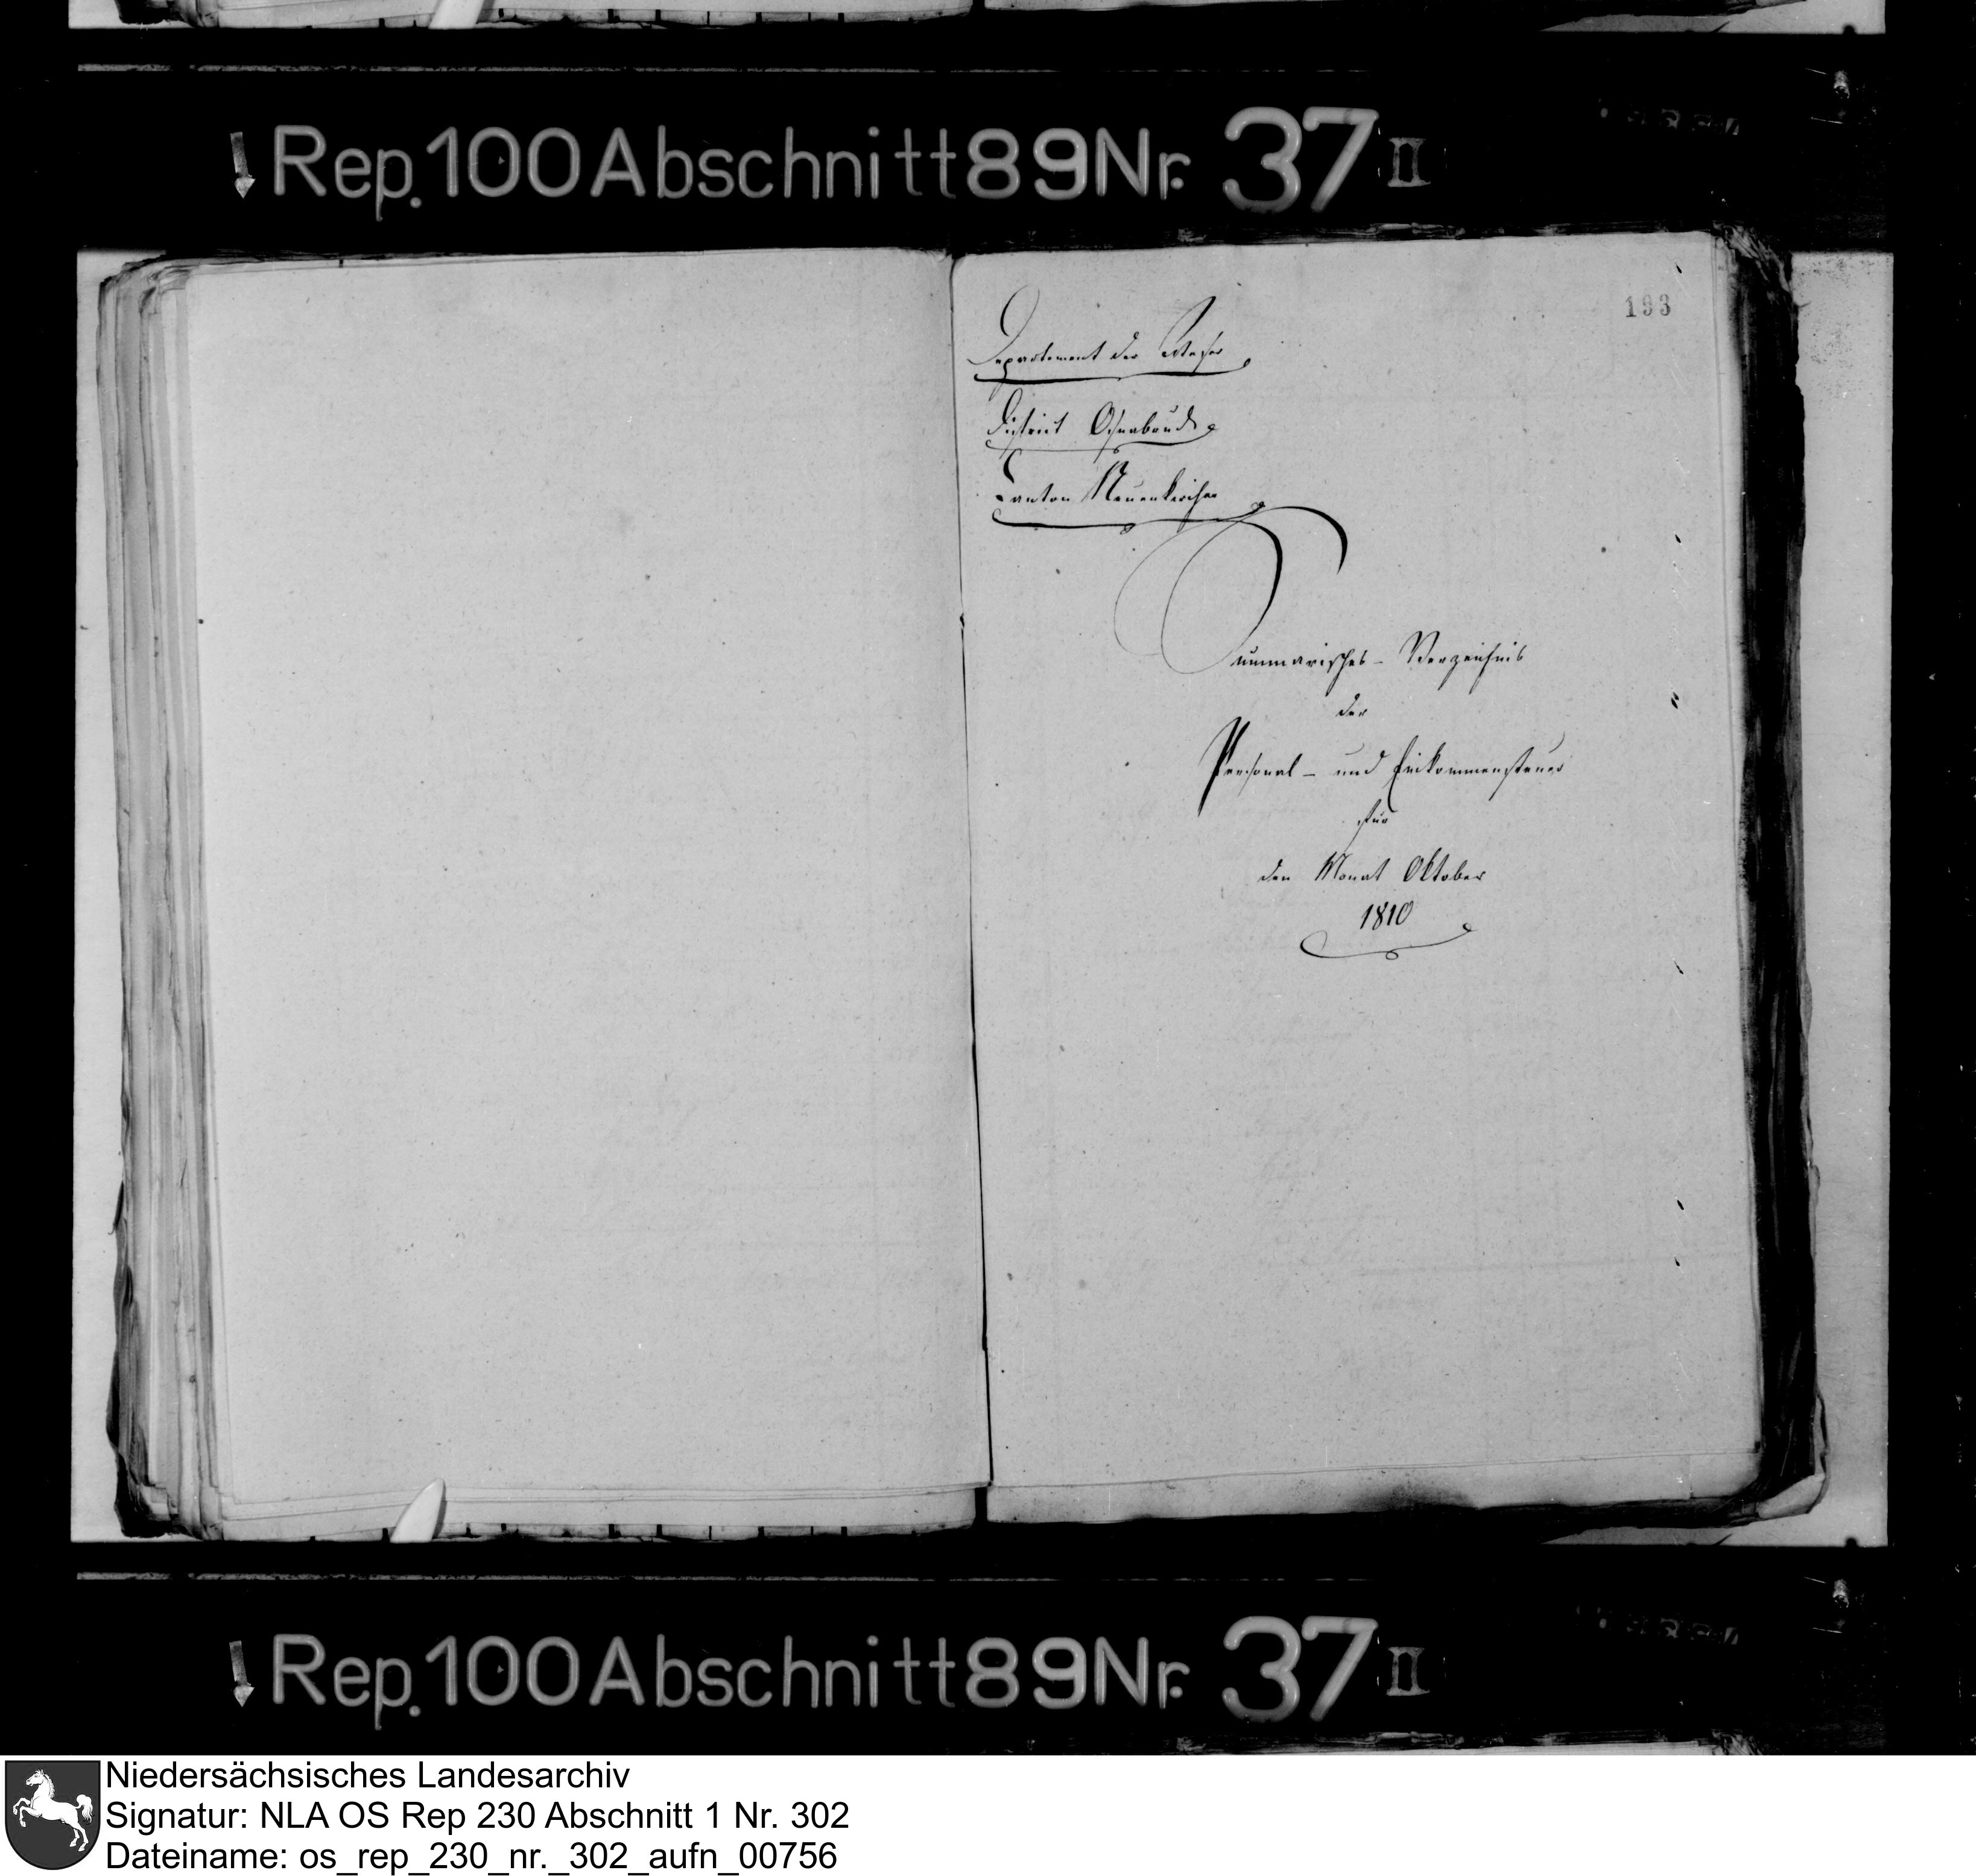 Rep. 100 Abschnitt 89 Nr. 37 II
193
Departement der Weser
District Osnabrück
Canton Neuenkirchen
Summarisches - Verzeichnis
der
Personal - und Einkommensteuer
für
den Monat Oktober
1810
Rep. 100 Abschnitt 89 Nr. 37 II
Niedersächsisches Landesarchiv
Signatur: NLA OS Rep 230 Abschnitt 1 Nr. 302
Dateiname: os_rep_230_nr._302_aufn_00756